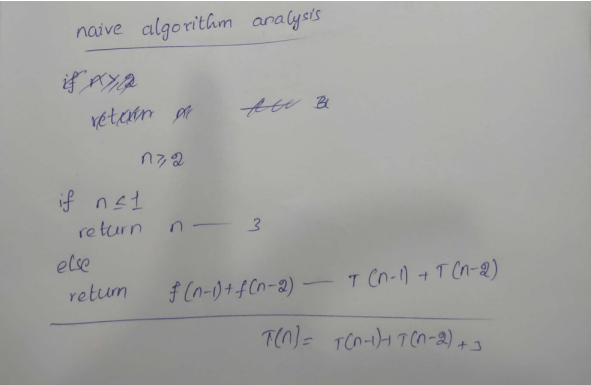 naive algorithm analysis
if n≥2
return n
n≥2
if n≤1
return n — 3
else
return f(n-1)+f(n-2) — T(n-1) + T(n-2)
T(n)= T(n-1)+T(n-2)+3